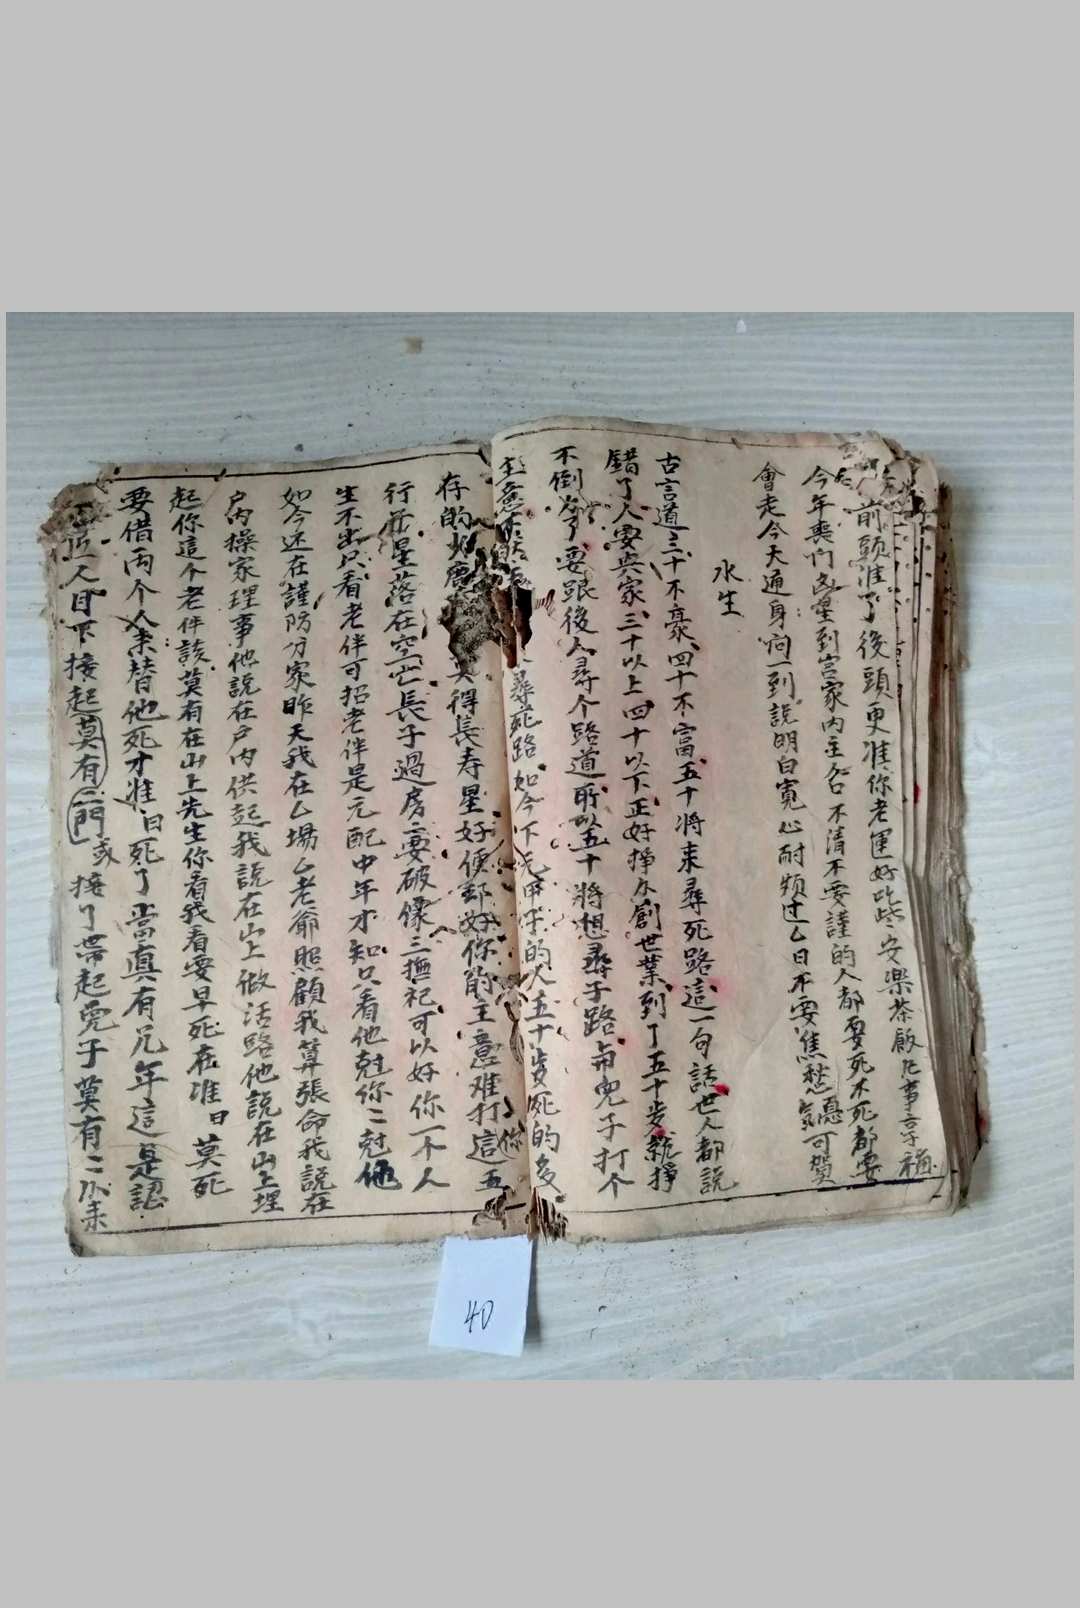 前頭准了後頭更准你老運好些些安樂茶飯凡事亨通
今年喪門凶星到宮家內主合不清不要謹的人都要死不死都要
會走今天通身向一到說明白寬心耐煩过么日不要焦愁憂氣可賀
水生
古言道三十不豪四十不富五十將來尋死路這一句話世人都說
錯了人要興家三十以上四十以下正好掙介創世業到了五十岁就掙
不倒了要跟後人尋个路道所以五十將想尋子路與兒子打个
主意 尋死路如今下元甲子的人五十岁死的多
存的 得長寿星好便却好你的主意难打這五你
行 星落在空亡長子過房要破像三撫祀可以好你一不人
生不出只看老伴可招老伴是元配中年才知只看他尅你二尅他
如今还在謹防分家昨天我在么場么老爺照顧我算張命我說在
户内操家理事他說在户内供起我說在山上做活路他說在山上埋
起你這个老伴該莫有在山上先生你看我看要早死在准日莫死
要借两个人來替他死才准日死了當真有兄年這是認
人目下接起莫有二門或接了帶起兒子莫有二水来
40